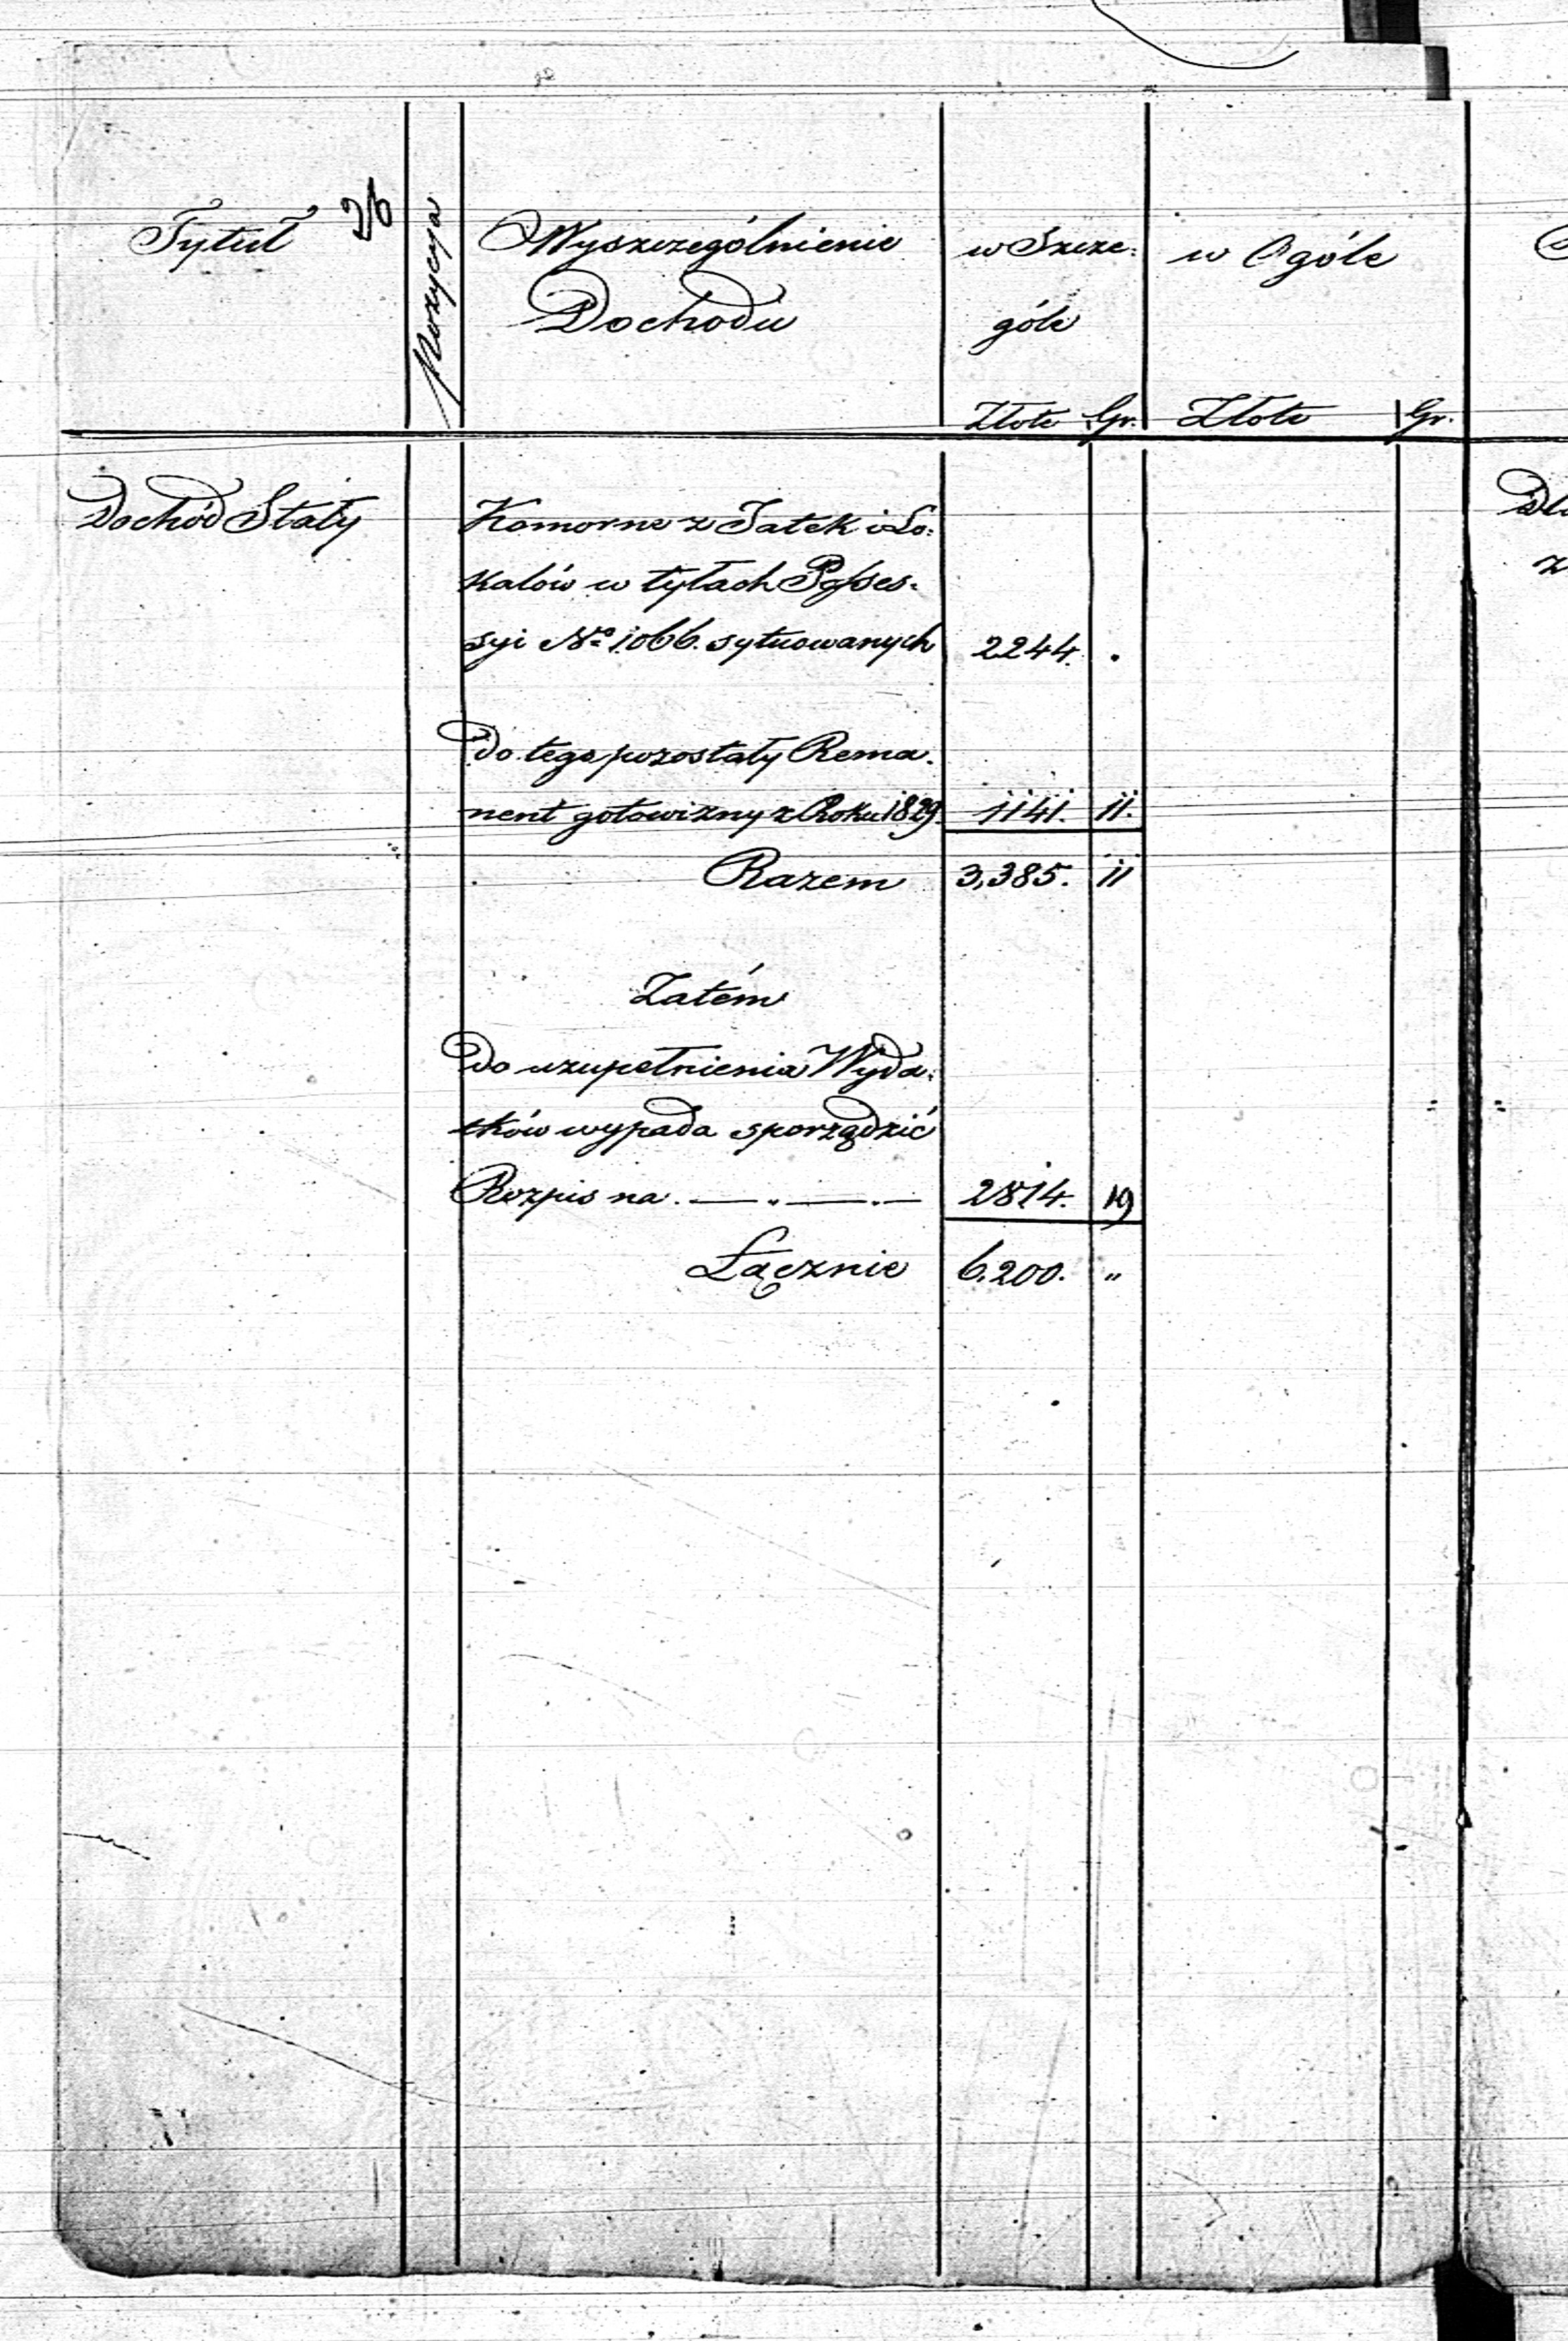 26
Tytuł
Pozycya
Wyszczególnienie
Dochodu
w Szcze:
góle
w Ogóle
Złote Gr. Złote Gr.
Dochód Stały
Komorne z Jatek i Lo:
kalów w tyłach Posses:
syi No. 1066. sytuowanych 2244. .
do tego pozostały Rema:
nent gotowizny z Roku 1829. 1141. 11.
Razem 3,385. 11
Zatém
do uzupełnienia Wyda:
tków wypada sporządzić
Rozpis na . — „ — . — 2814. 19
Łącznie 6,200. „